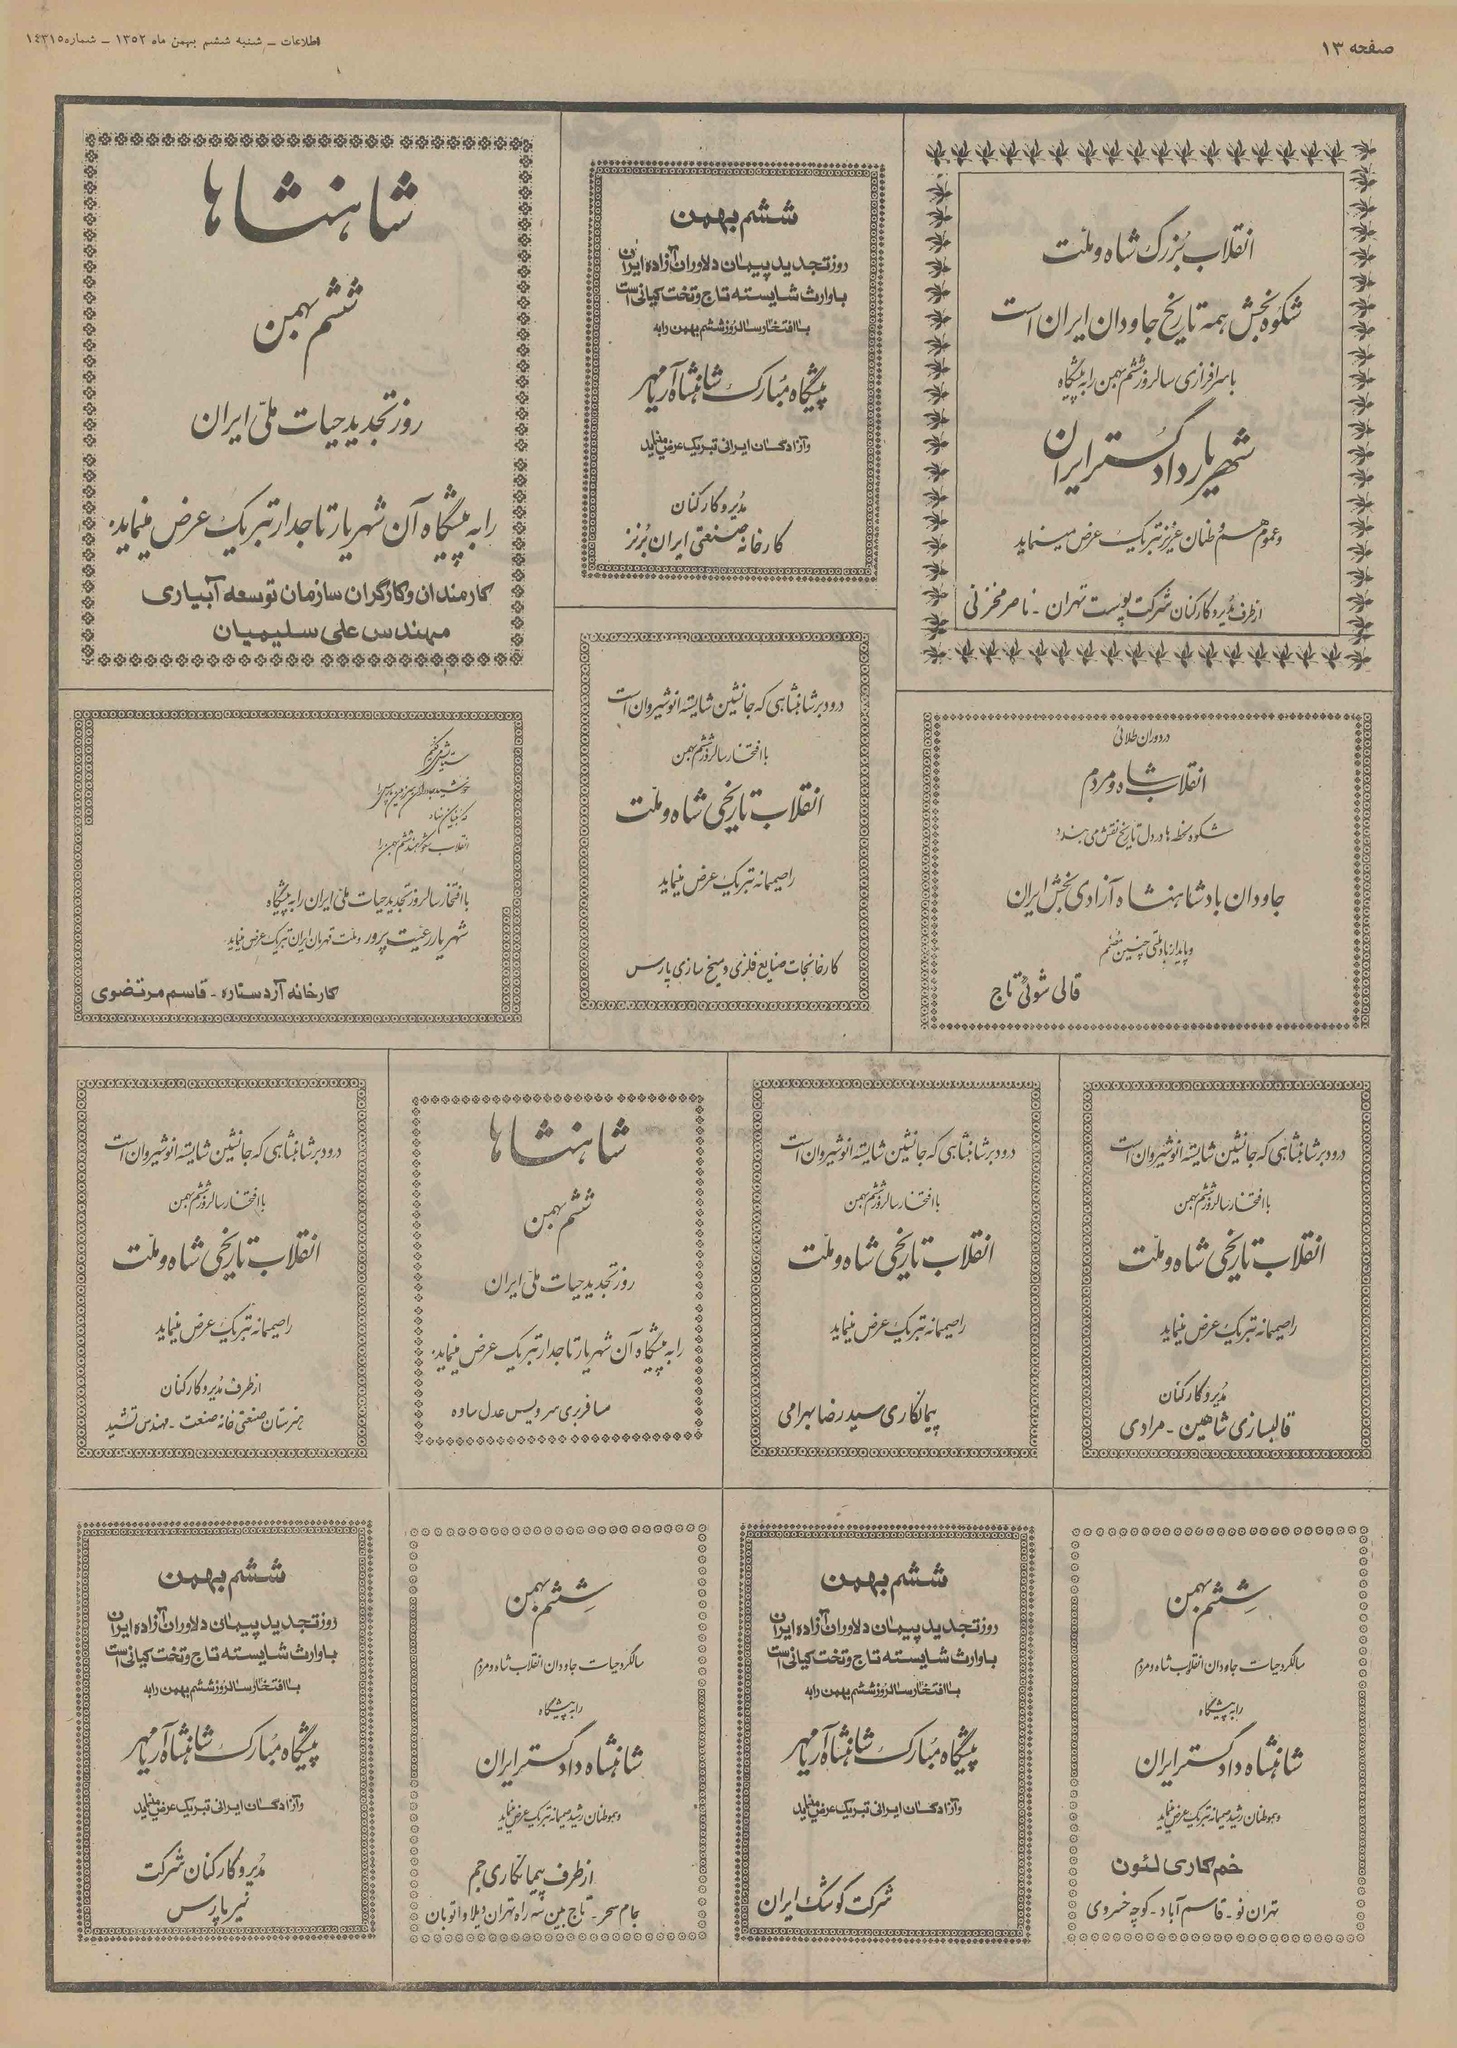 صفحه ۱۳
اطلاعات ـ شنبه ششم بهمن ماه ۱۳۵۲ ـ شماره ۱۴۳۱۵
انقلاب بزرگ شاه و ملت
شکوه بخش همه تاریخ جاودان ایران است
با سرافرازی سالروز ششم بهمن را به پیشگاه
شهریار دادگستر ایران
و عموم هم وطنان عزیز تبریک عرض مینماید
از طرف مدیر و کارکنان شرکت پوست تهران ـ ناصر مخزنی
ششم بهمن
روز تجدید پیمان دلاوران آزاده ایران
با وارث شایسته تاج و تخت کیانی است
با افتخار سالروز ششم بهمن را به
پیشگاه مبارک شاهنشاه آریامهر
و آزادگان ایرانی تبریک عرض مینماید
مدیر و کارکنان
کارخانه صنعتی ایران برنز
شاهنشاها
ششم بهمن
روز تجدید حیات ملی ایران
را به پیشگاه آن شهریار تاجدار تبریک عرض مینماید.
کارمندان و کارگران سازمان توسعه آبیاری
مهندس علی سلیمیان
در دوران طلائی
انقلاب شاه و مردم
شکوه لحظه ها در دل تاریخ نقش می بندد
جاودان باد شاهنشاه آزادی بخش ایران
و پایدار باد ملتی چنین مصمم
قالی شوئی تاج
درود بر شاهنشاهی که جانشین شایسته انوشیروان است
با افتخار سالروز ششم بهمن
انقلاب تاریخی شاه و ملت
را صمیمانه تبریک عرض مینماید
کارخانجات صنایع فلزی و میخ سازی پارس
ستایش میکنیم
خورشید جاودان سرزمین پارس را
که بنیان نهاد
انقلاب شکوهمند ششم بهمن را
با افتخار سالروز تجدید حیات ملی ایران را به پیشگاه
شهریار رعیت پرور و ملت قهرمان ایران تبریک عرض مینماید.
کارخانه آرد ستاره ـ قاسم مرتضوی
درود بر شاهنشاهی که جانشین شایسته انوشیروان است
با افتخار سالروز ششم بهمن
انقلاب تاریخی شاه و ملت
را صمیمانه تبریک عرض مینماید
مدیر و کارکنان
قالبسازی شاهین ـ مرادی
درود بر شاهنشاهی که جانشین شایسته انوشیروان است
با افتخار سالروز ششم بهمن
انقلاب تاریخی شاه و ملت
را صمیمانه تبریک عرض مینماید
پیمانکاری سید رضا بهرامی
شاهنشاها
ششم بهمن
روز تجدید حیات ملی ایران
را به پیشگاه آن شهریار تاجدار تبریک عرض مینماید.
مسافربری سرویس عدل ساوه
درود بر شاهنشاهی که جانشین شایسته انوشیروان است
با افتخار سالروز ششم بهمن
انقلاب تاریخی شاه و ملت
را صمیمانه تبریک عرض مینماید
از طرف مدیر و کارکنان
هنرستان صنعتی خانه صنعت ـ مهندس
ششم بهمن
سالگرد حیات جاودان انقلاب شاه و مردم
را به پیشگاه
شاهنشاه دادگستر ایران
و هموطنان رشید صمیمانه تبریک عرض مینماید
خم کاری لئون
تهران نو ـ قاسم آباد ـ کوچه خسروی
ششم بهمن
روز تجدید پیمان دلاوران آزاده ایران
با وارث شایسته تاج و تخت کیانی است
با افتخار سالروز ششم بهمن را به
پیشگاه مبارک شاهنشاه آریامهر
و آزادگان ایرانی تبریک عرض مینماید
شرکت کوشک ایران
ششم بهمن
سالگرد حیات جاودان انقلاب شاه و مردم
را به پیشگاه
شاهنشاه دادگستر ایران
و هموطنان رشید صمیمانه تبریک عرض مینماید
از طرف پیمانکاری جم
جام سحر ـ تاج بین سه راه تهران ویلا و اتوبان
ششم بهمن
روز تجدید پیمان دلاوران آزاده ایران
با وارث شایسته تاج و تخت کیانی است
با افتخار سالروز ششم بهمن را به
پیشگاه مبارک شاهنشاه آریامهر
و آزادگان ایرانی تبریک عرض مینماید
مدیر و کارکنان شرکت
نیرپارس